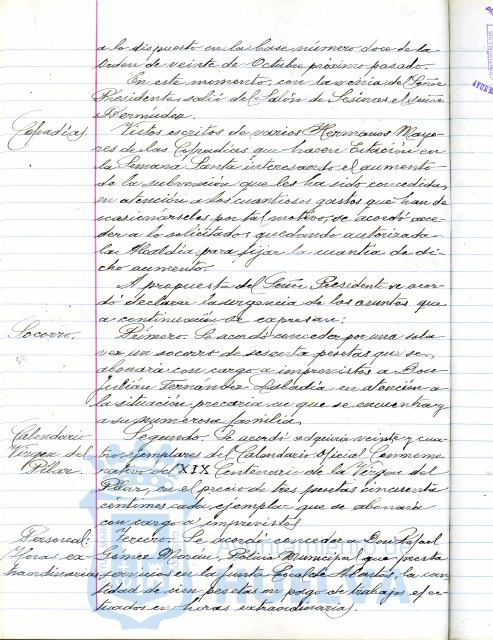 a lo dispuesto en la base número doce de la
Orden de veinte de Octubre próximo pasado.
En este momento, con la venia del Señor
Presidente, salió del Salón de Sesiones el señor
Bermudez.
Cofradías. Vistos escritos de varios Hermanos Mayo-
res de las Cofradias que hacen Estación en
la Semana Santa interesando el aumento
de la subvención que les ha sido concedida,
en atención a los cuantiosos gastos que han de
ocasionárseles por tal motivo, se acordó acce-
der a lo solicitado, quedando autorizada
la Alcaldía para fijar la cuantia de di-
cho aumento.
A propuesta del Señor Presidente se acor-
dó declarar la urgencia de los asuntos que
a continuación se expresan:
Socorro. Primero. Se acordó conceder por una sola
vez un socorro de sesenta pesetas que se
abonará con cargo a imprevistos a Don
Julián Fernández en atención a
la situación precaria en que se encuentra y
a su numerosa familia.
Calendario Segundo. Se acordó adquirir veinte y cua-
Virgen del tro ejemplares del Calendario Oficial Conmemo-
Pilar. rativo del XIX Centenario de la Virgen del
Pilar, en el precio de tres pesetas cincuenta
céntimos cada ejemplar que se abonará
con cargo a imprevistos.
Personal: Tercero. Se acordó conceder a Don Rafael
Horas ex- Gómez Morán, Policia Municipal que presta
traordinarias servicios en la Junta Local de Abastos, la can-
tidad de cien pesetas en pago de trabajos efec-
tuados en horas extraordinarias.